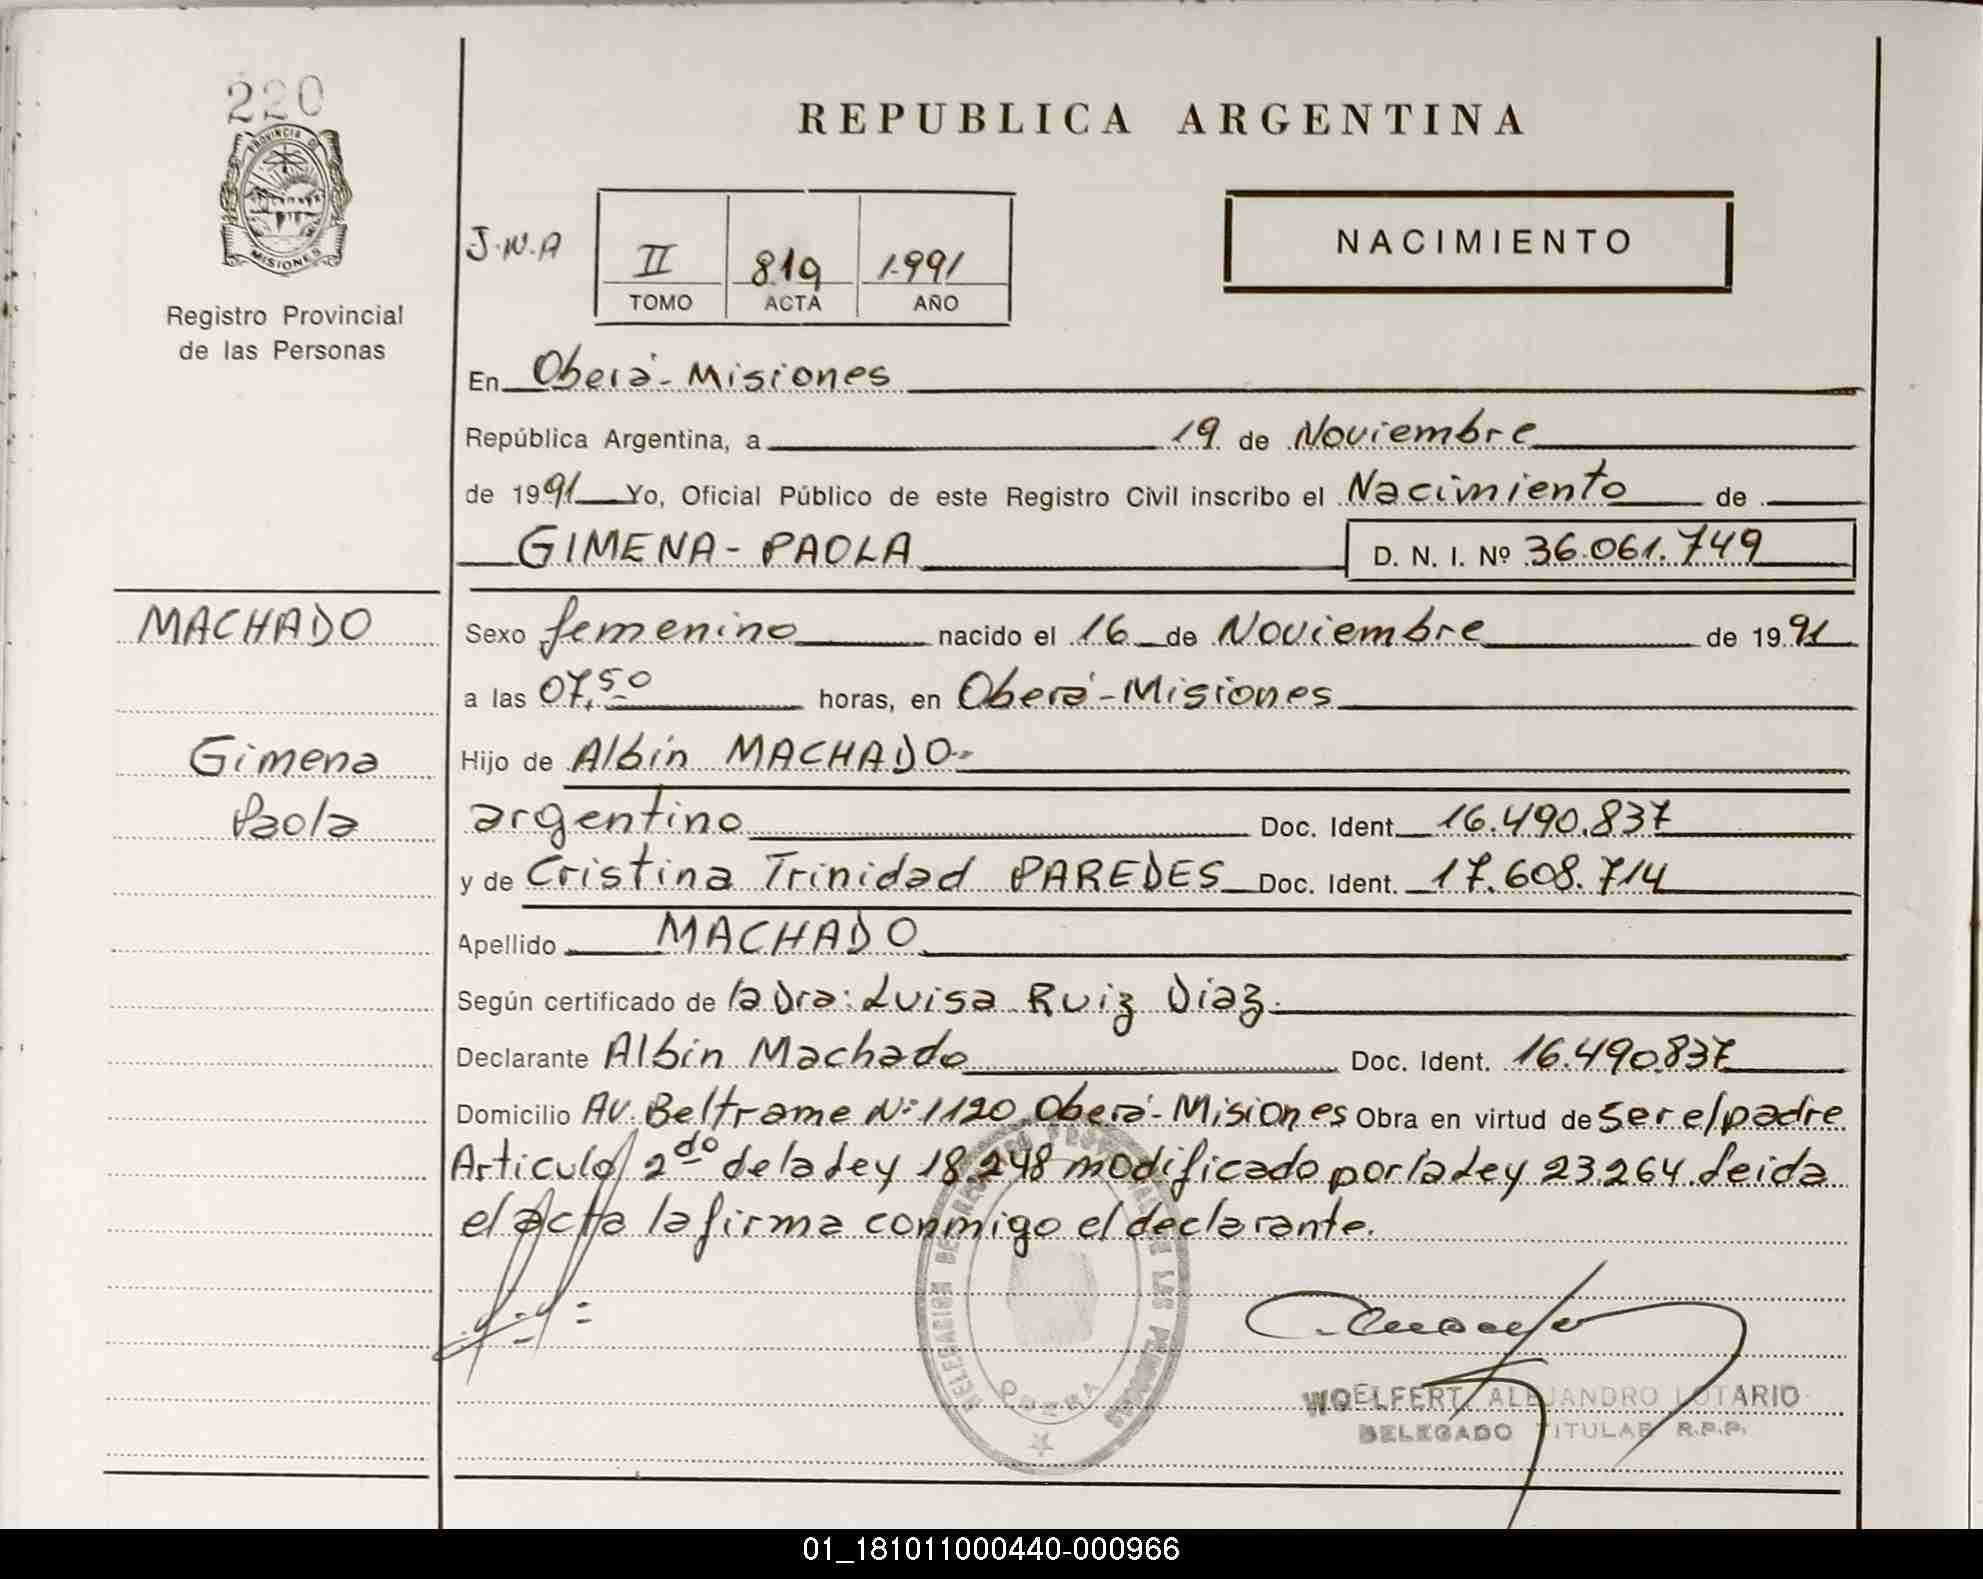 220
PROVINCIA DE
MISIONES
Registro Provincial
de las Personas
REPUBLICA ARGENTINA
J.N.A
II 819 1.991
TOMO ACTA AÑO
NACIMIENTO
En Oberá - Misiones
República Argentina, a 19 de Noviembre
de 1991 Yo, Oficial Público de este Registro Civil inscribo el Nacimiento de
GIMENA - PAOLA D. N. I. Nº 36.061.749
MACHADO
Gimena
Paola
Sexo femenino nacido el 16 de Noviembre de 1991
a las 07,50 horas, en Oberá - Misiones
Hijo de Albin MACHADO-
argentino Doc. Ident. 16.490.837
y de Cristina Trinidad PAREDES Doc. Ident. 17.608.714
Apellido MACHADO
Según certificado de la Dra: Luisa Ruiz Diaz.
Declarante Albin Machado Doc. Ident. 16.490.837
Domicilio Av. Beltrame Nº 1120 Oberá - Misiones Obra en virtud de ser el padre
Articulo 2do de la Ley 18.248 modificado por la Ley 23.264. Leida
el acta la firma conmigo el declarante.
DELEGACION DE REGISTRO PROVINCIAL DE LAS PERSONAS
WOELFERT, ALEJANDRO LOTARIO
DELEGADO TITULAR R.P.P.
01_181011000440-000966